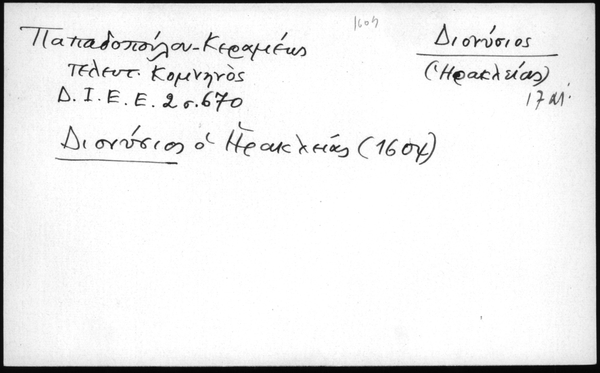 1604
Παπαδοπούλου-Κεραμέως
τελευτ. Κομνηνὸς
Δ. Ι. Ε. Ε. 2 σ. 670
Διονύσιος
(Ἡρακλείας)
17 αἰ.
Διονύσιος ὁ Ἡρακλείας (1604)